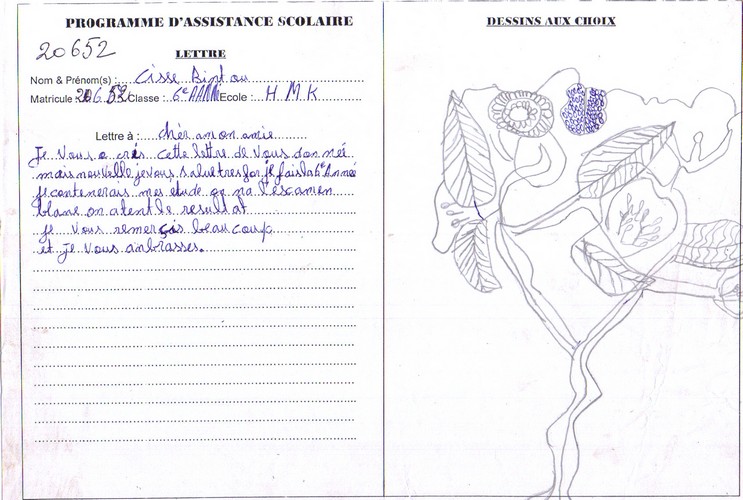 PROGRAMME D'ASSISTANCE SCOLAIRE
20652
LETTRE
Nom & Prénom(s) : Cisse Bintou
Matricule : 20652 Classe : 6e Ecole : H M K
Lettre à : chèr amon amie
Je Vous a cris cette lettre de Vous donneé
mais nouvelle je vous salue tres for je fais la 6e Année
je contenerais mes etude on na l'escamen
blanc on atent le resultat
je vous remerçis beaucoup
et je Vous ainbrasses.
DESSINS AUX CHOIX